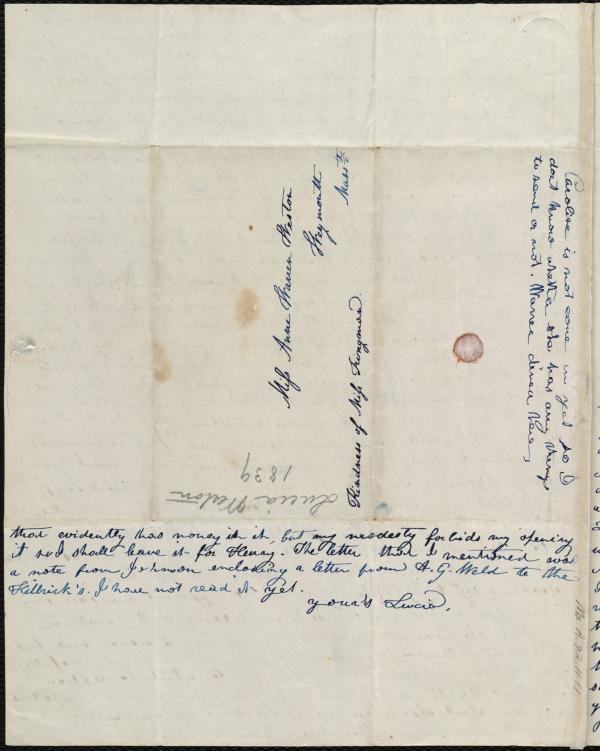 Caroline is not come in yet so I
dont know whether she has any thing
to send or not. Warren dined here,
Miss Anne Warren Weston
Weymouth
Masstts
Kindness of Miss Kingman.
Lucia Weston
1839
that evidently has money in it, but my modesty forbids my opening
it so I shall leave it for Henry. The letter that I mentioned was
a note from Johnson enclosing a letter from A. G. Weld to the
yet. I have not read it
yours Lucia.